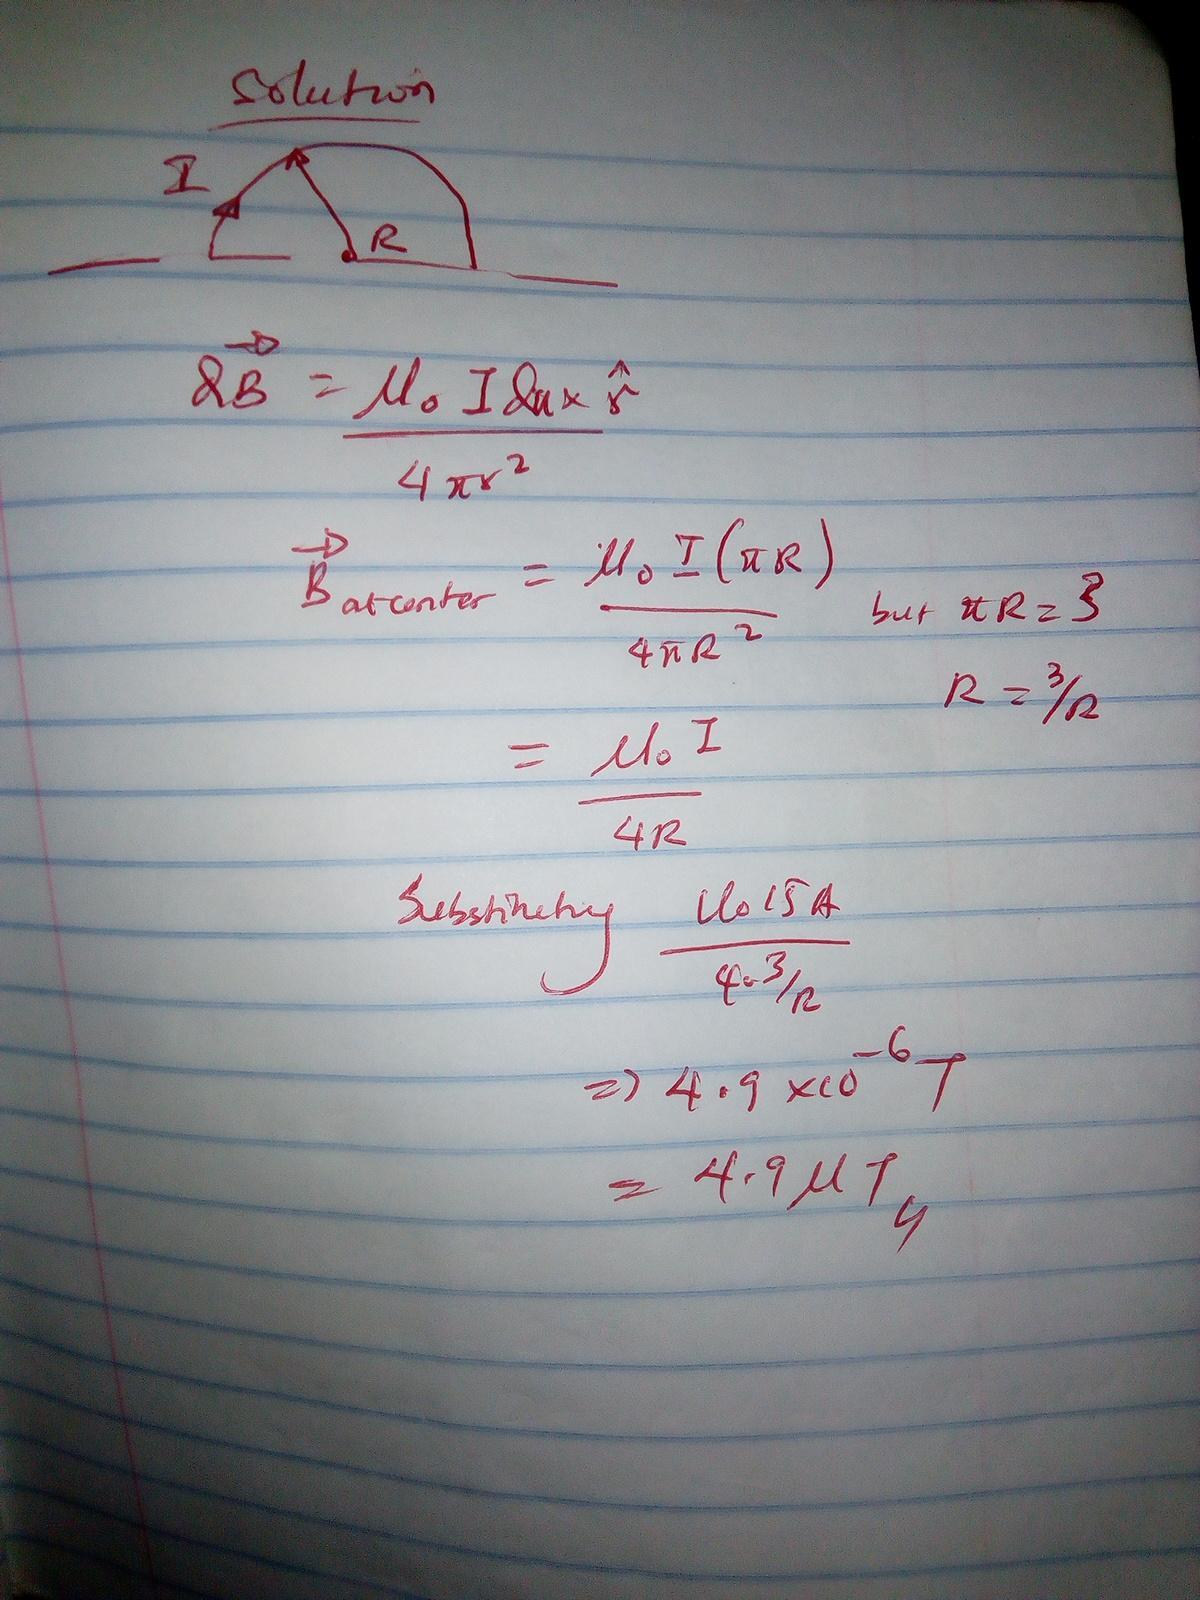 Solution
I
R
dB = μ₀ I dl × r̂
4πr²
B at center = μ₀ I (πR)
4πR²
but πR = 3
R = 3/R
= μ₀ I
4R
Substituting μ₀ 15A
4·3/R
=> 4.9 × 10⁻⁶ T
= 4.9 μT